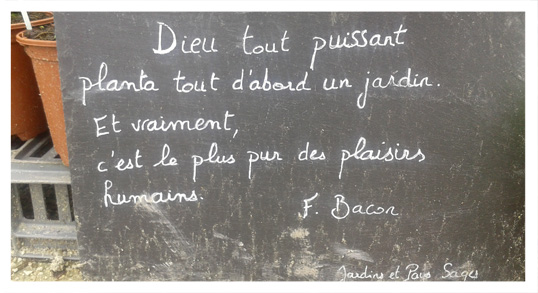 Dieu tout puissant
planta tout d'abord un jardin.
Et vraiment,
c'est le plus pur des plaisirs
humains.
F. Bacon
Jardins et Pays Sages